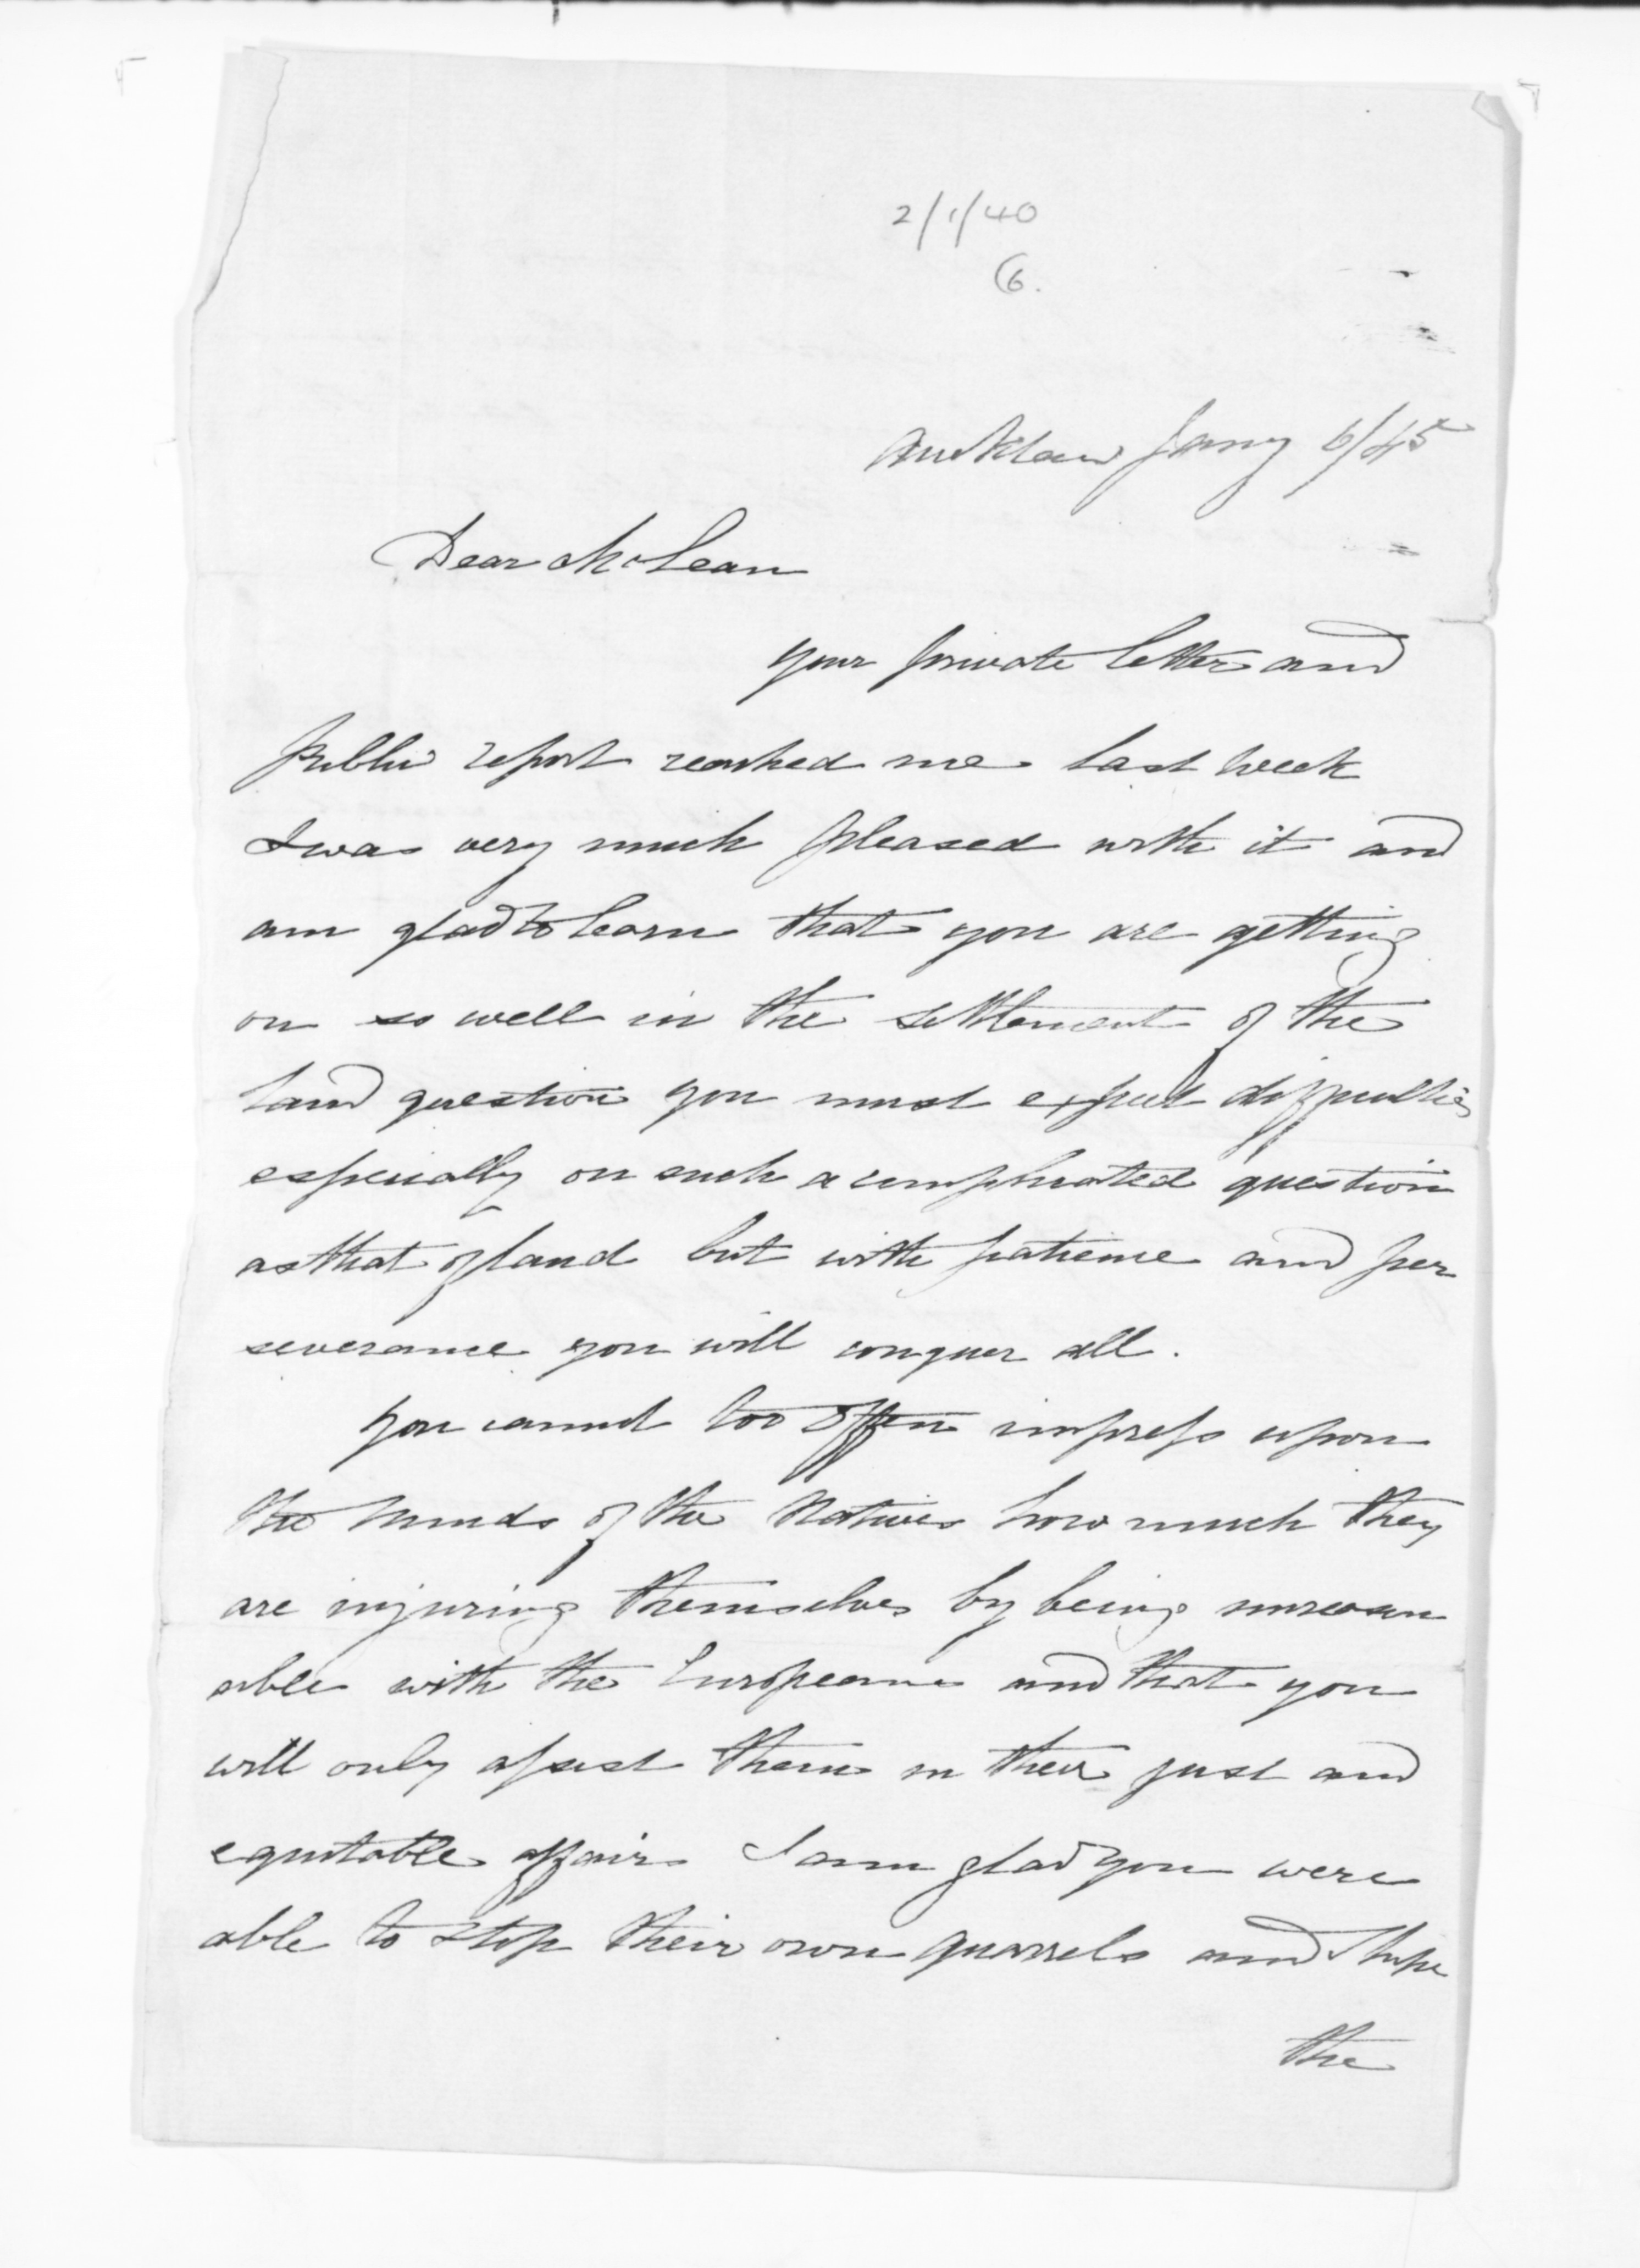 2/1/40
6.
Auckland Jany 6/45
Dear McLean
your private letter and
public report reached me last week
I was very much pleased with it and
am glad to learn that you are getting
on so well in the settlement of the
land question you must expect difficulties
especially on such a complicated question
as that of land but with patience and per
severance you will conquer all.
you cannot too often impress upon
the minds of the Natives how much they
are injuring themselves by being unreason
able with the Europeans and that you
will only assist them in their just and
equitable affairs I am glad you were
able to stop their own quarrels and I hope
the